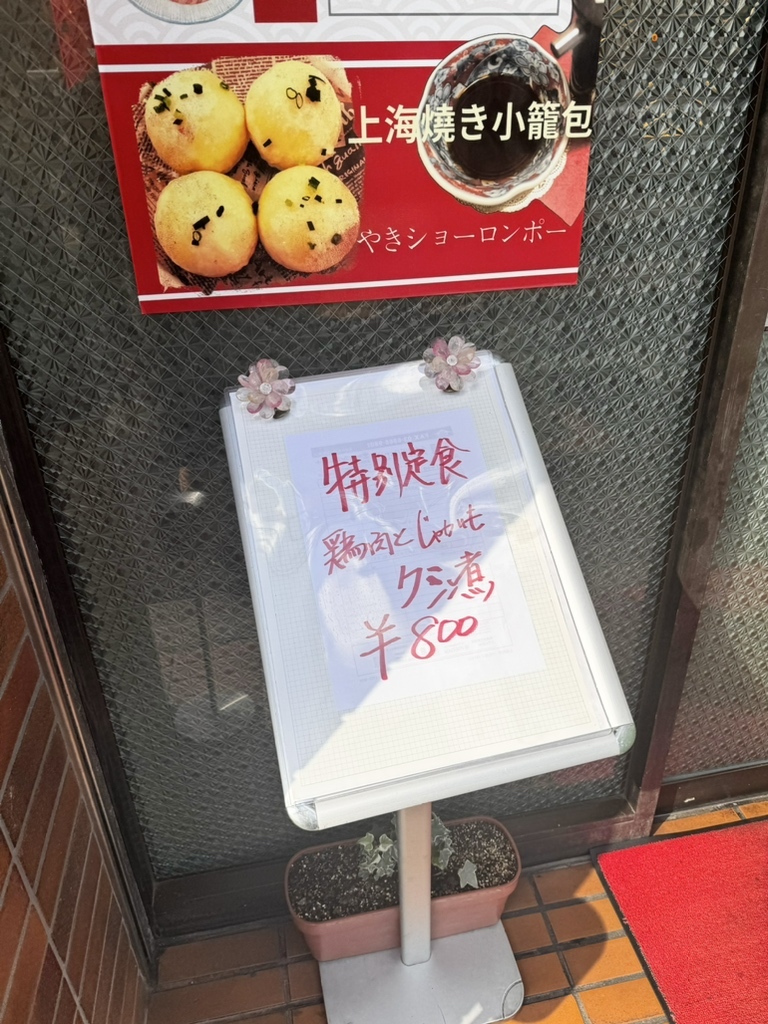 上海焼き小籠包
やきショーロンポー
特別定食
鶏肉とじゃがいも
クミン煮
¥800